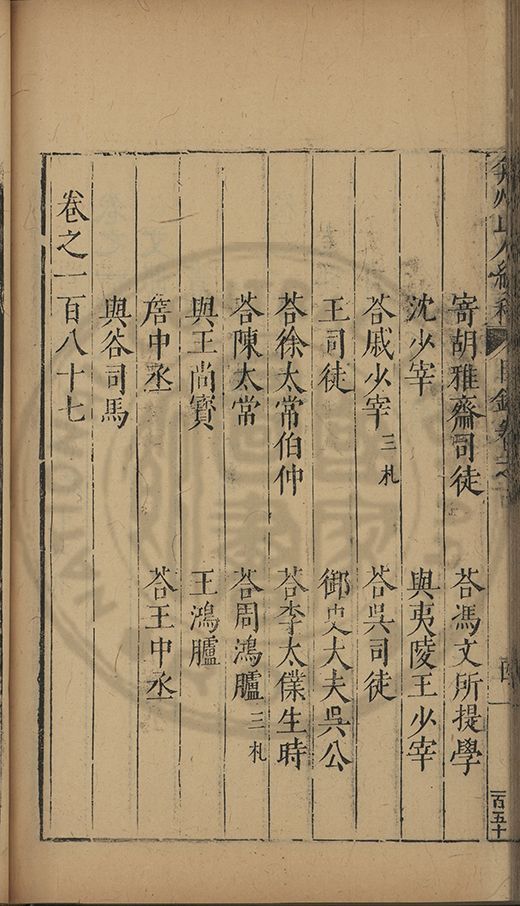 弇州山人續稿 目錄卷之
寄胡雅齋司徒 荅馮文所提學
沈少宰 與夷陵王少宰
荅戚少宰三札 荅吳司徒
王司徒 御史大夫吳公
荅徐太常伯仲 荅李太僕生時
荅陳太常 荅周鴻臚三札
與王尚寳 王鴻臚
詹中丞 荅王中丞
與谷司馬
卷之一百八十七
百五十